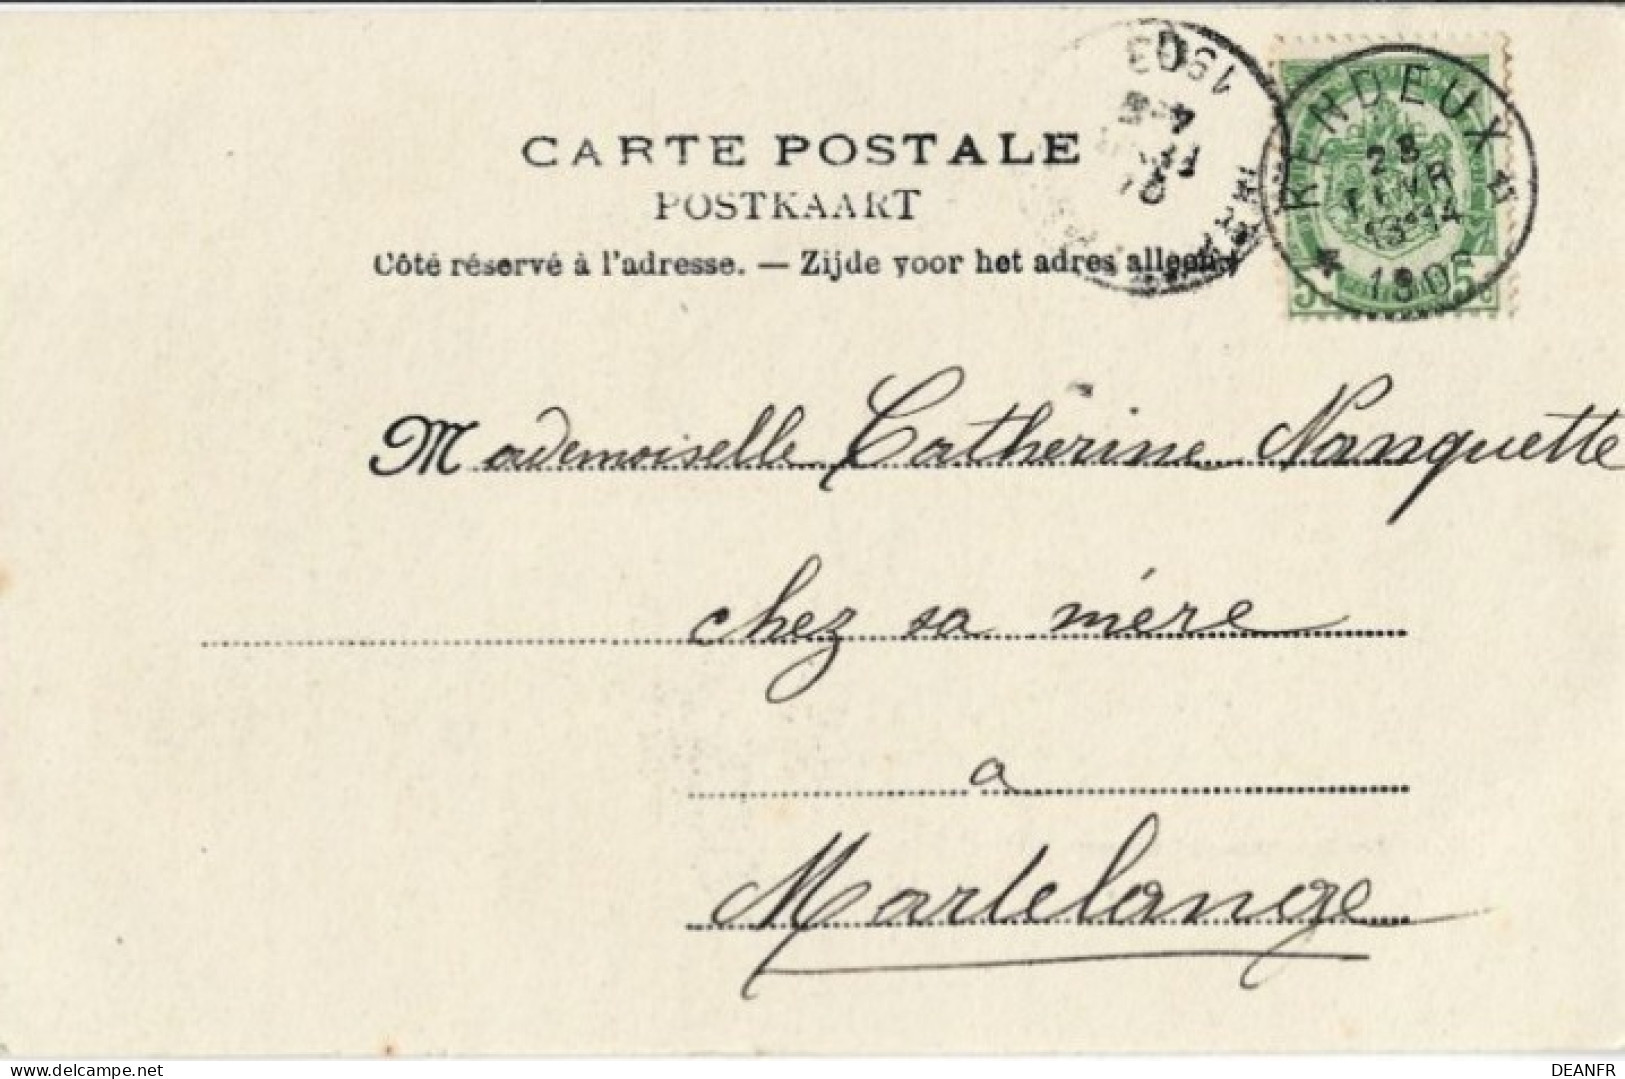 CARTE POSTALE
POSTKAART
Côté réservé à l'adresse. — Zijde voor het adres alleen
RENDEUX
1903
Mademoiselle Catherine Nanquette
chez sa mère
a
Martelange
https://www.delcampe.net
DEANFR